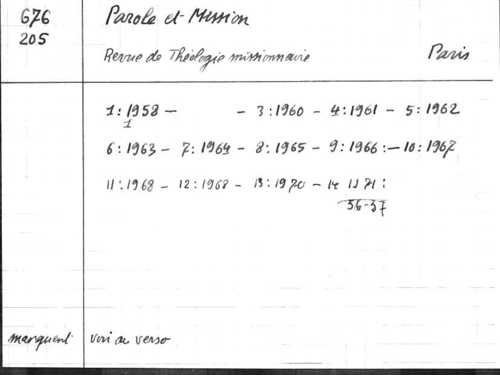 676 Parole et Mission
205
Revue de Théologie missionnaire Paris
1:1958 - - 3:1960 - 4:1961 - 5:1962
1
6:1963 - 7:1964 - 8:1965 - 9:1966:- 10:1967
11:1968 - 12:1968 - 13:1970 - 14 1971:
56-57
manquent voir au verso